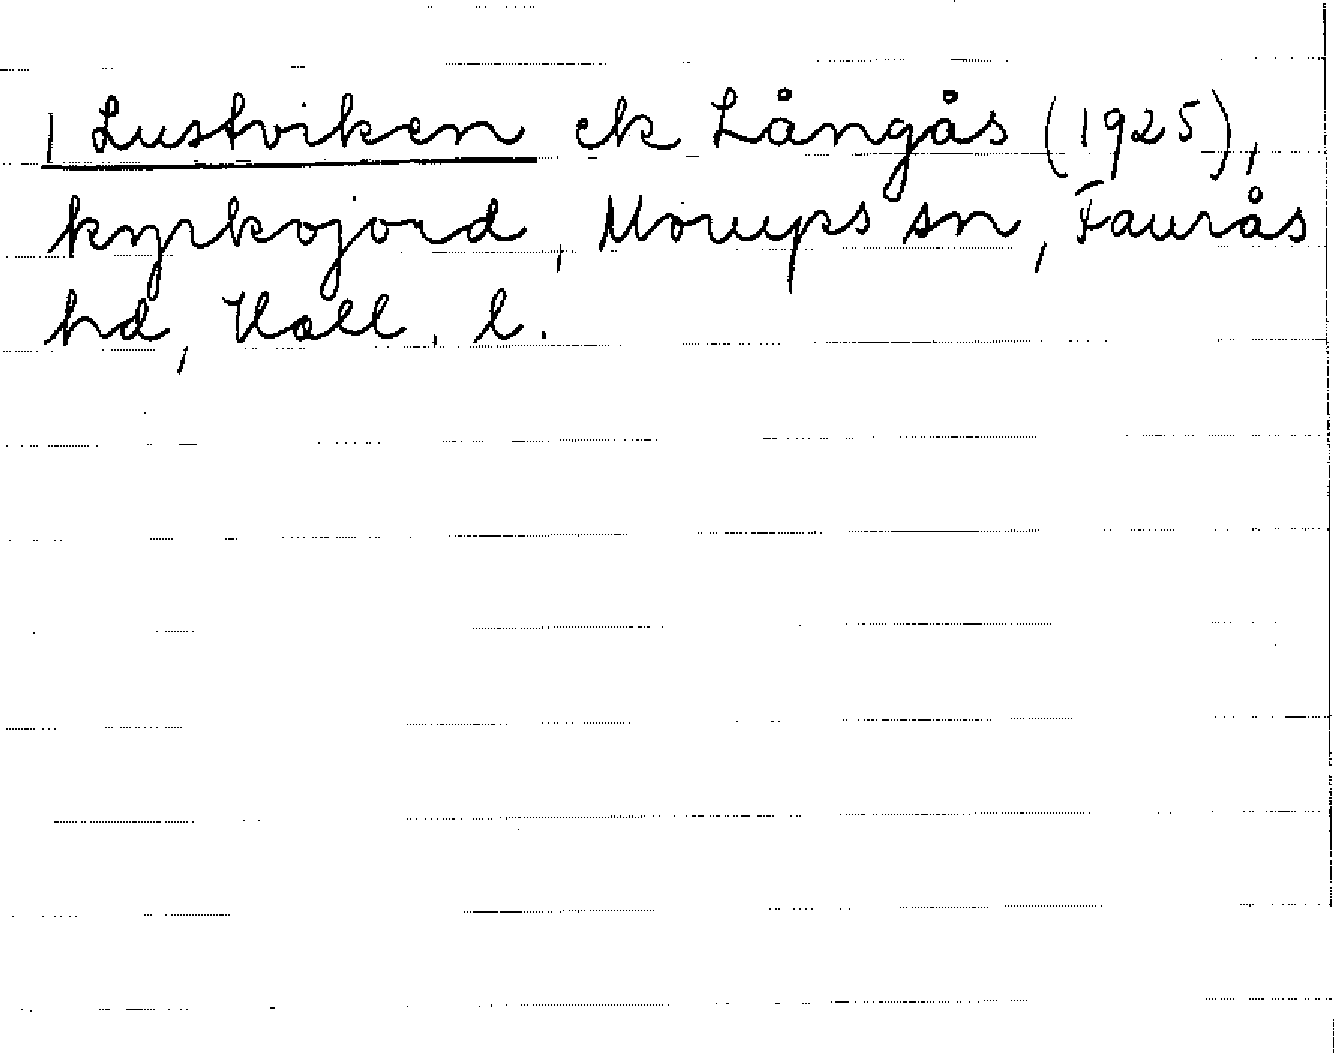 | Lustviken ek Långås (1925),
kyrkojord, Morups sn, Faurås
hd, Hall. l.